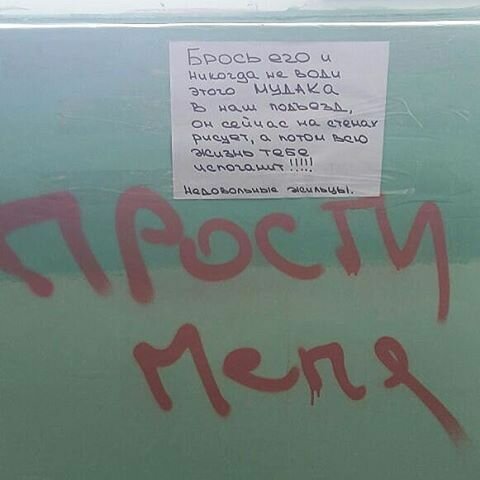 Брось его и
никогда не води
этого МУДАКА
в наш подъезд,
он сейчас на стенах
рисует, а потом всю
жизнь тебе
испоганит!!!!!
Недовольные жильцы.
ПРОСТИ
Меня